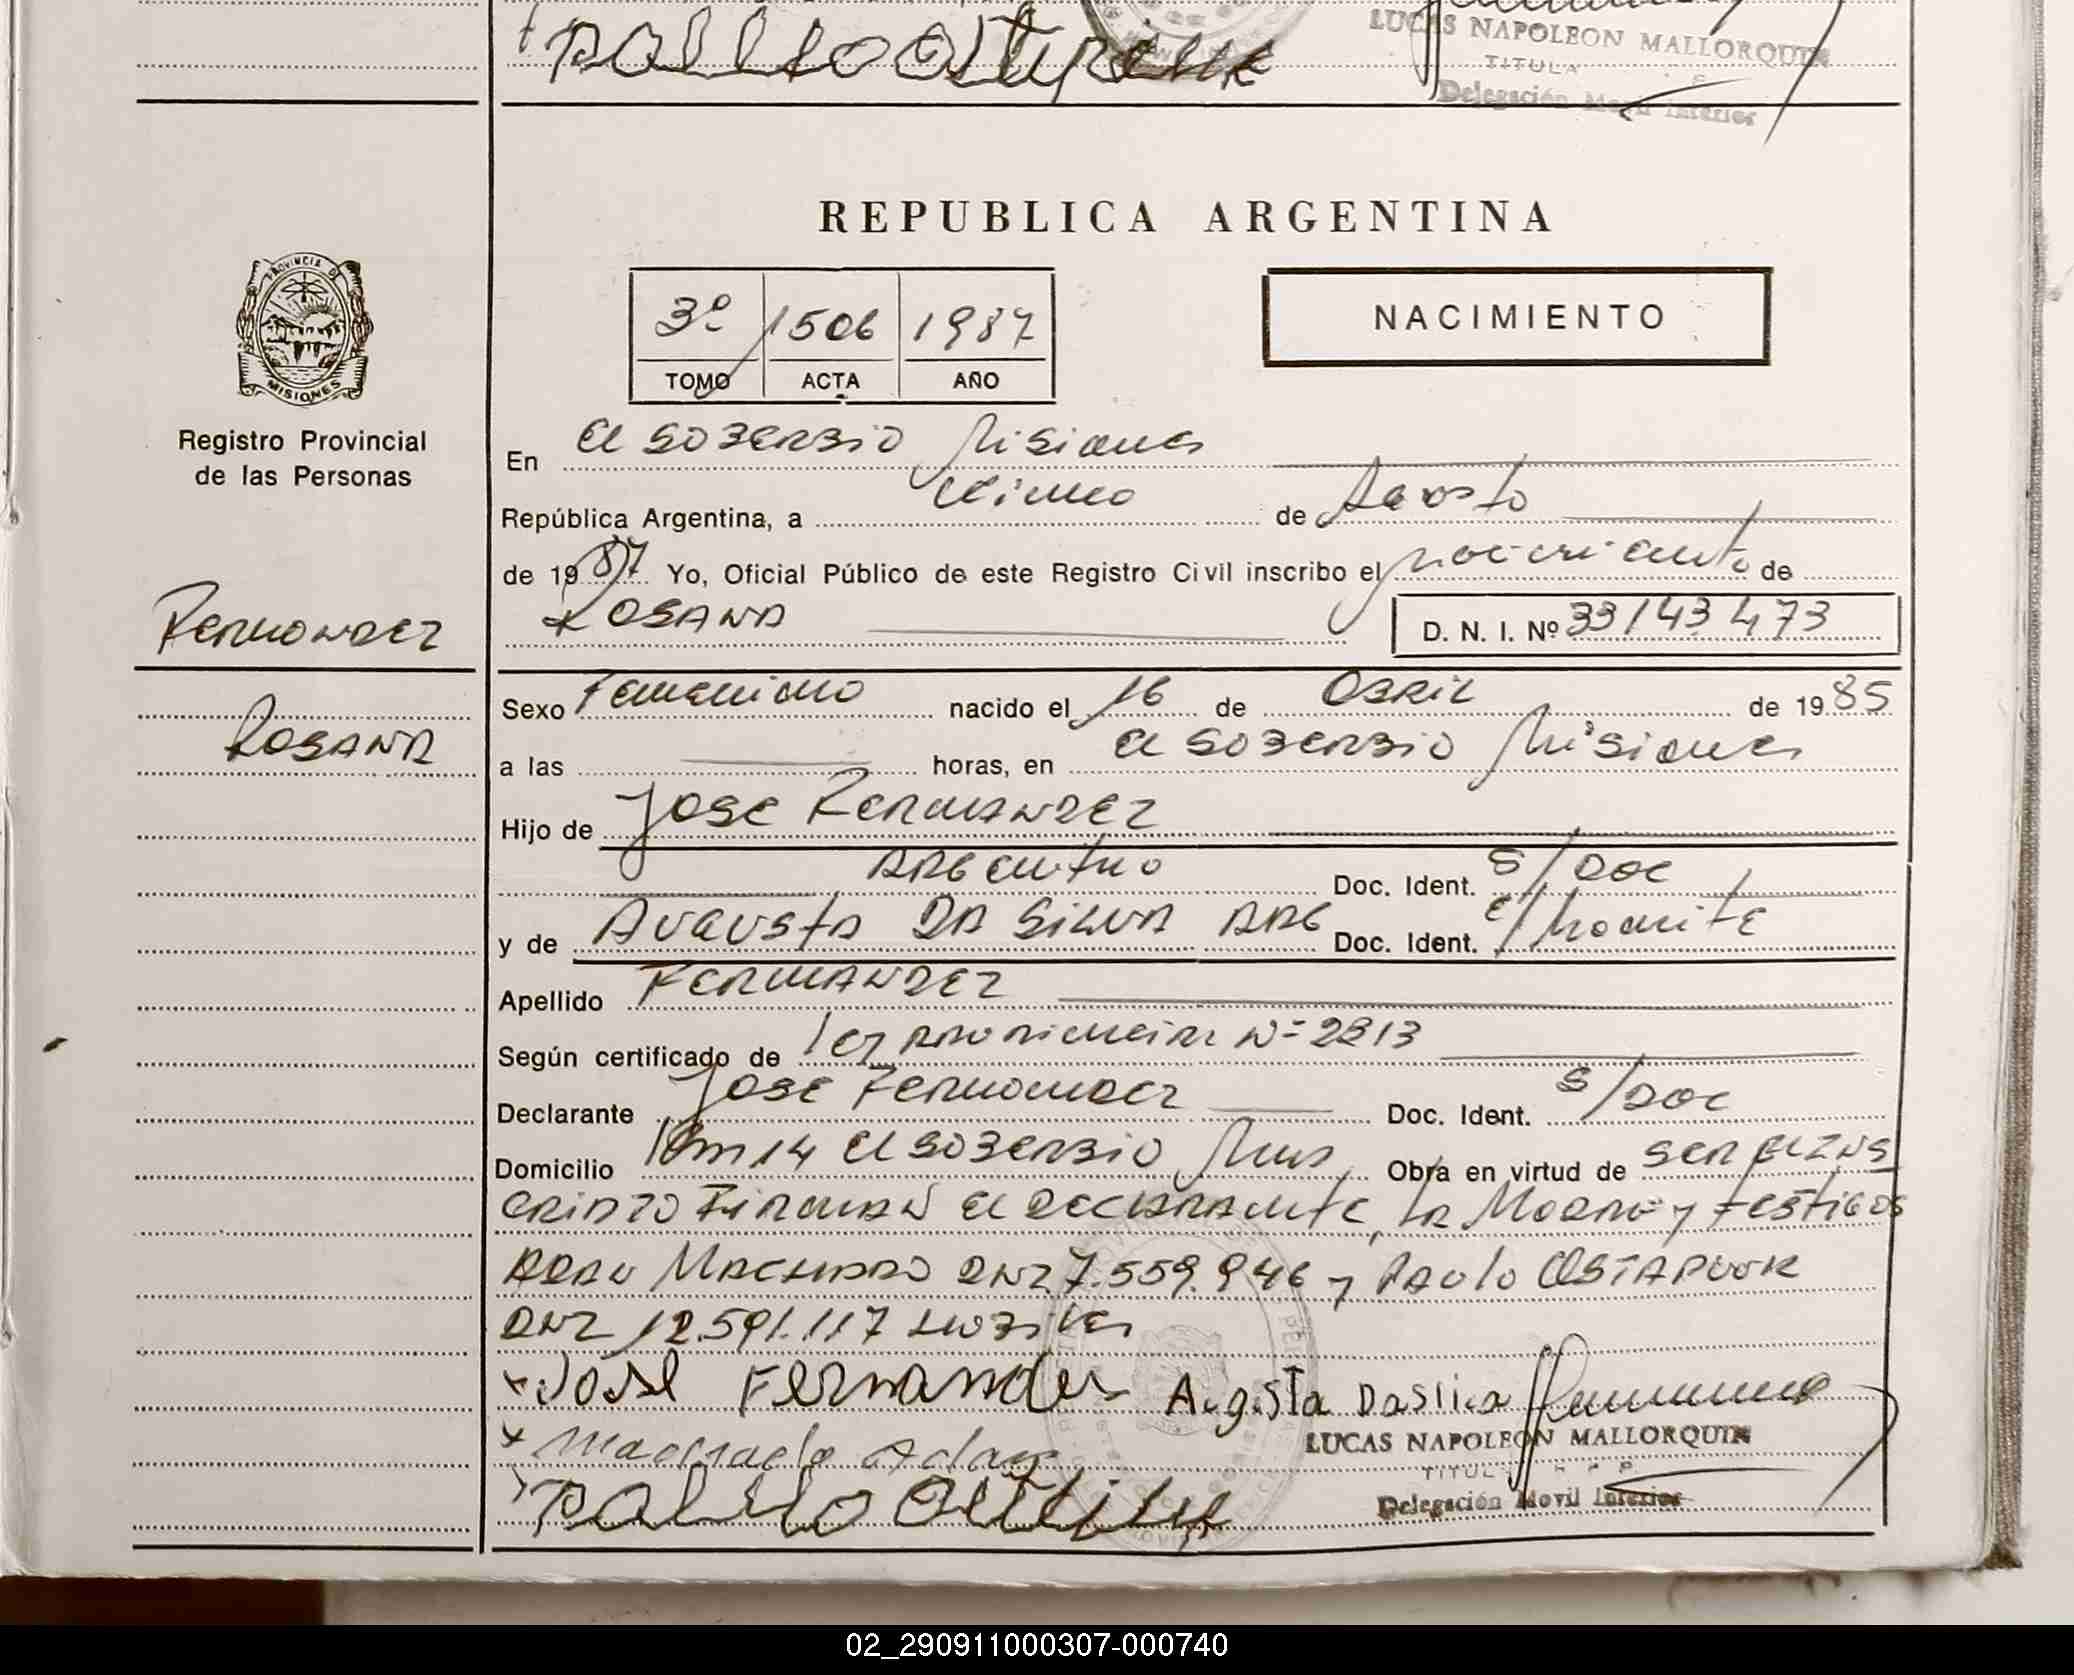 LUCAS NAPOLEON MALLORQUIN
TITULA
Delegación Movil Interior
REPUBLICA ARGENTINA
PROVINCIA DE
MISIONES
Registro Provincial
de las Personas
3º 1506 1987
TOMO ACTA AÑO
NACIMIENTO
En El SOBERBIO Misiones
República Argentina, a cinco de Agosto
de 1987 Yo, Oficial Público de este Registro Civil inscribo el nacimiento de
ROSANA D. N. I. Nº 33/143 473
FERNANDEZ
ROSANA
Sexo Femenino nacido el 16 de ABRIL de 1985
a las horas, en El SOBERBIO Misiones
Hijo de JOSE FERNANDEZ
ARGENTINO Doc. Ident. S/DOC
y de AUGUSTA DA SILVA ARG Doc. Ident. E/tramite
Apellido FERNANDEZ
Según certificado de ley PROVINCIAL Nº 2213
Declarante JOSE FERNANDEZ Doc. Ident. S/DOC
Domicilio Km 14 El SOBERBIO Mnes Obra en virtud de SER EL INS
CRIPTO FIRMAN El DECLARANTE, LA MADRE y TESTIGOS
ADAN MACHADO DNI 7.559.946 y PAULO OSTAPUUK
DNI 12.591.117 HABILES
x José Fernandes Augusta Daslica
x Machado Adan
LUCAS NAPOLEON MALLORQUIN
TITUL
Delegación Movil Interior
02_290911000307-000740